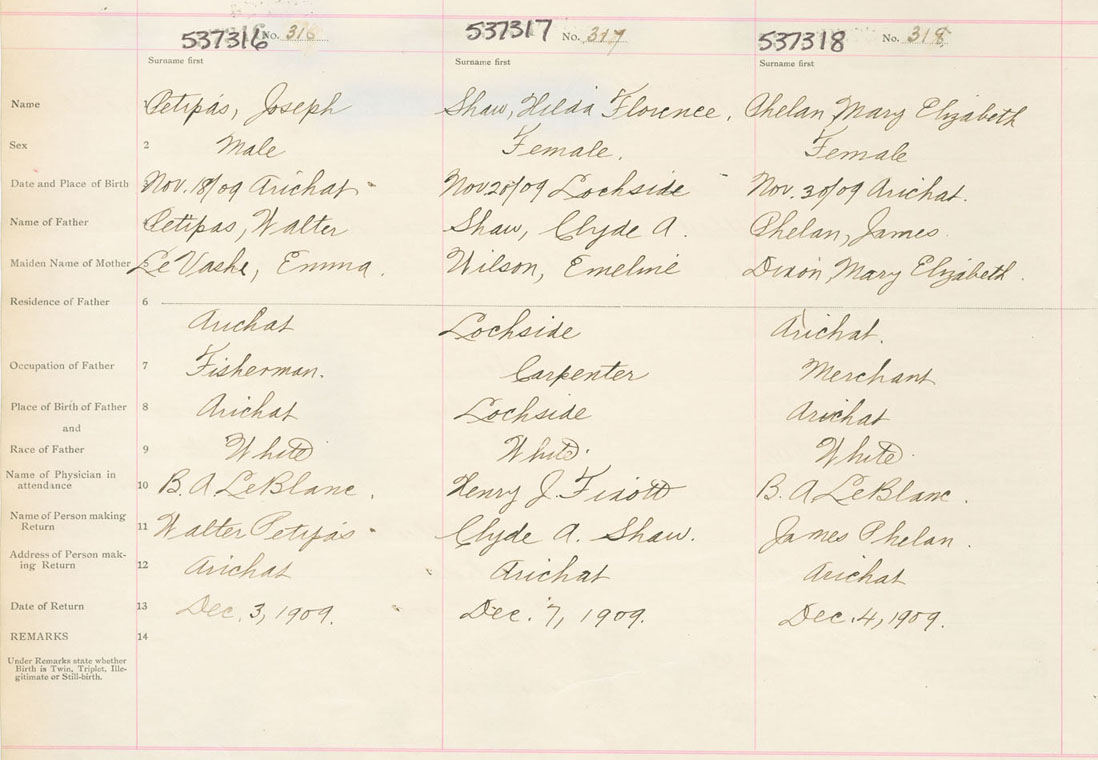 537316 No. 316 537317 No. 317 537318 No. 318
Surname first Surname first Surname first
Name 1 Petipás, Joseph Shaw, Hilda Florence. Phelan, Mary Elizabeth
Sex 2 Male Female. Female
Date and Place of Birth 3 Nov. 18/09 Arichat Nov 20/09 Lochside Nov. 30/09 Arichat.
Name of Father 4 Petipas, Walter Shaw, Clyde A. Phelan, James
Maiden Name of Mother 5 Le Vashe, Emma. Wilson, Emeline Dixon, Mary Elizabeth.
Residence of Father 6
Arichat Lochside Arichat.
Occupation of Father 7 Fisherman. Carpenter Merchant
Place of Birth of Father 8 Arichat Lochside Arichat
and
Race of Father 9 White White. White.
Name of Physician in attendance 10 B. A LeBlanc. Henry J. Fixott B. A LeBlanc.
Name of Person making Return 11 Walter Petipás Clyde A. Shaw. James Phelan.
Address of Person mak-
ing Return 12 Arichat Arichat Arichat
Date of Return 13 Dec. 3, 1909. Dec. 7, 1909. Dec. 4, 1909.
REMARKS 14
Under Remarks state whether
Birth is Twin, Triplet, Ille-
gitimate or Still-birth.